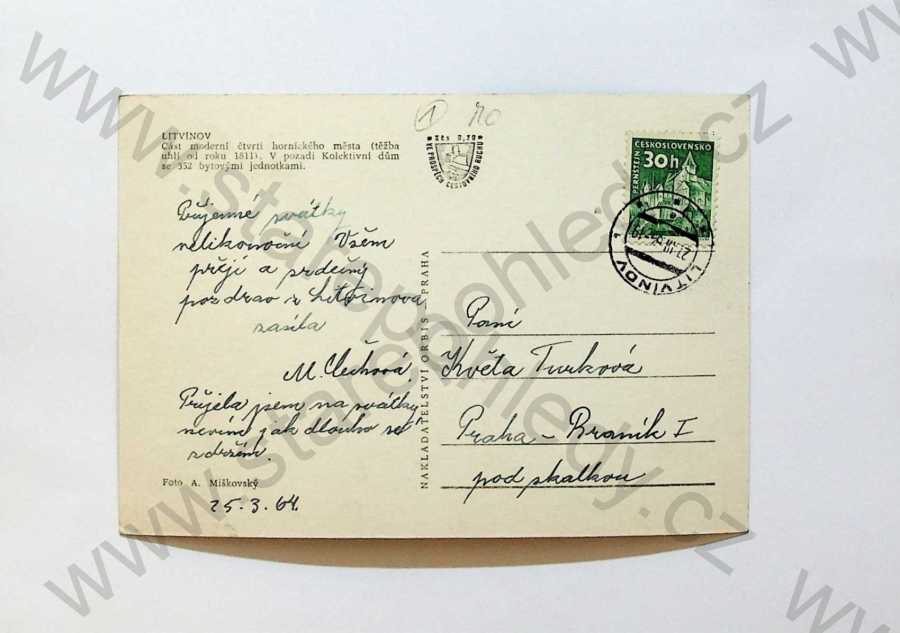 LITVÍNOV
Část moderní čtvrti hornického města (těžba
uhlí od roku 1811). V pozadí Kolektivní dům
se 352 bytovými jednotkami.
1 70
Kčs 0,70
VE PROSPĚCH CESTOVNÍHO RUCHU
ČESKOSLOVENSKO
30h
PERNŠTEJN
LITVÍNOV
Příjemné svátky
velikonoční Všem
přejí a srdečný
pozdrav z Litvínova
zasílá
M. Clechová.
Přijela jsem na svátky,
nevím jak dlouho se
zdržím.
Foto A. Miškovský
25.3.64.
NAKLADATELSTVÍ ORBIS - PRAHA
Paní
Květa Turková
Praha - Braník I
pod skalkou
www.starepohledy.cz
www.starepohledy.cz